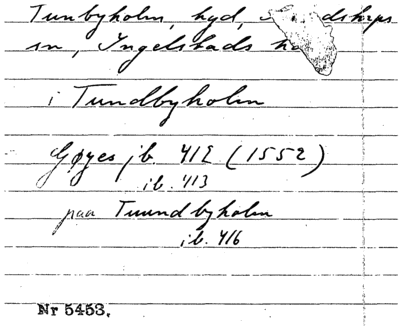 Tunbyholm, hyd, dskaps
sn, Ingelstads h
i Tundbyholm
Gøyes jb. 412 (1552)
ib. 413
paa Tuundbyholm
ib. 416
Nr 5453.